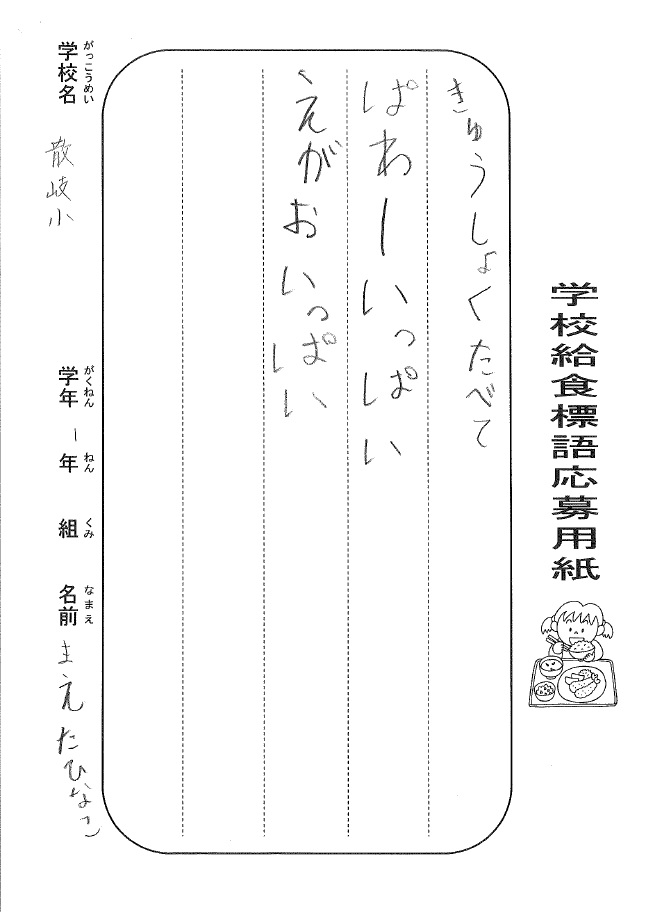 学校給食標語応募用紙
きゅうしょくたべて
ぱわーいっぱい
えがおいっぱい
学校名 がっこうめい 散岐小
学年 がくねん 1年 ねん 組 くみ 名前 なまえ まえたひなこ